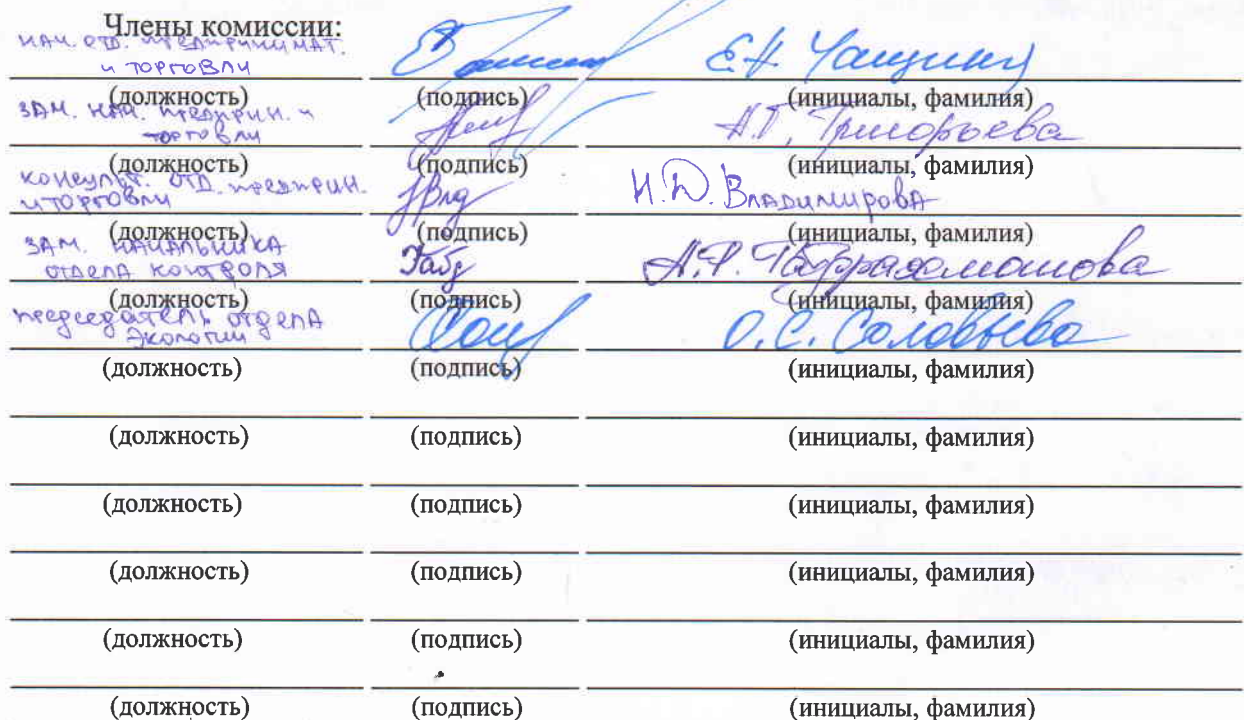 Члены комиссии:
нач. отд. предпринимат.
и торговли Е.Н. Чащина
(должность) (подпись) (инициалы, фамилия)
зам. нач. предприн. и
торговли А.Г. Григорьева
(должность) (подпись) (инициалы, фамилия)
консульт. отд. предприн.
и торговли Н.Д. Владимирова
(должность) (подпись) (инициалы, фамилия)
зам. начальника
отдела контроля Габд А.Р. Габдрахманова
(должность) (подпись) (инициалы, фамилия)
председатель отдела
экологии О.С. Соловьева
(должность) (подпись) (инициалы, фамилия)
(должность) (подпись) (инициалы, фамилия)
(должность) (подпись) (инициалы, фамилия)
(должность) (подпись) (инициалы, фамилия)
(должность) (подпись) (инициалы, фамилия)
(должность) (подпись) (инициалы, фамилия)